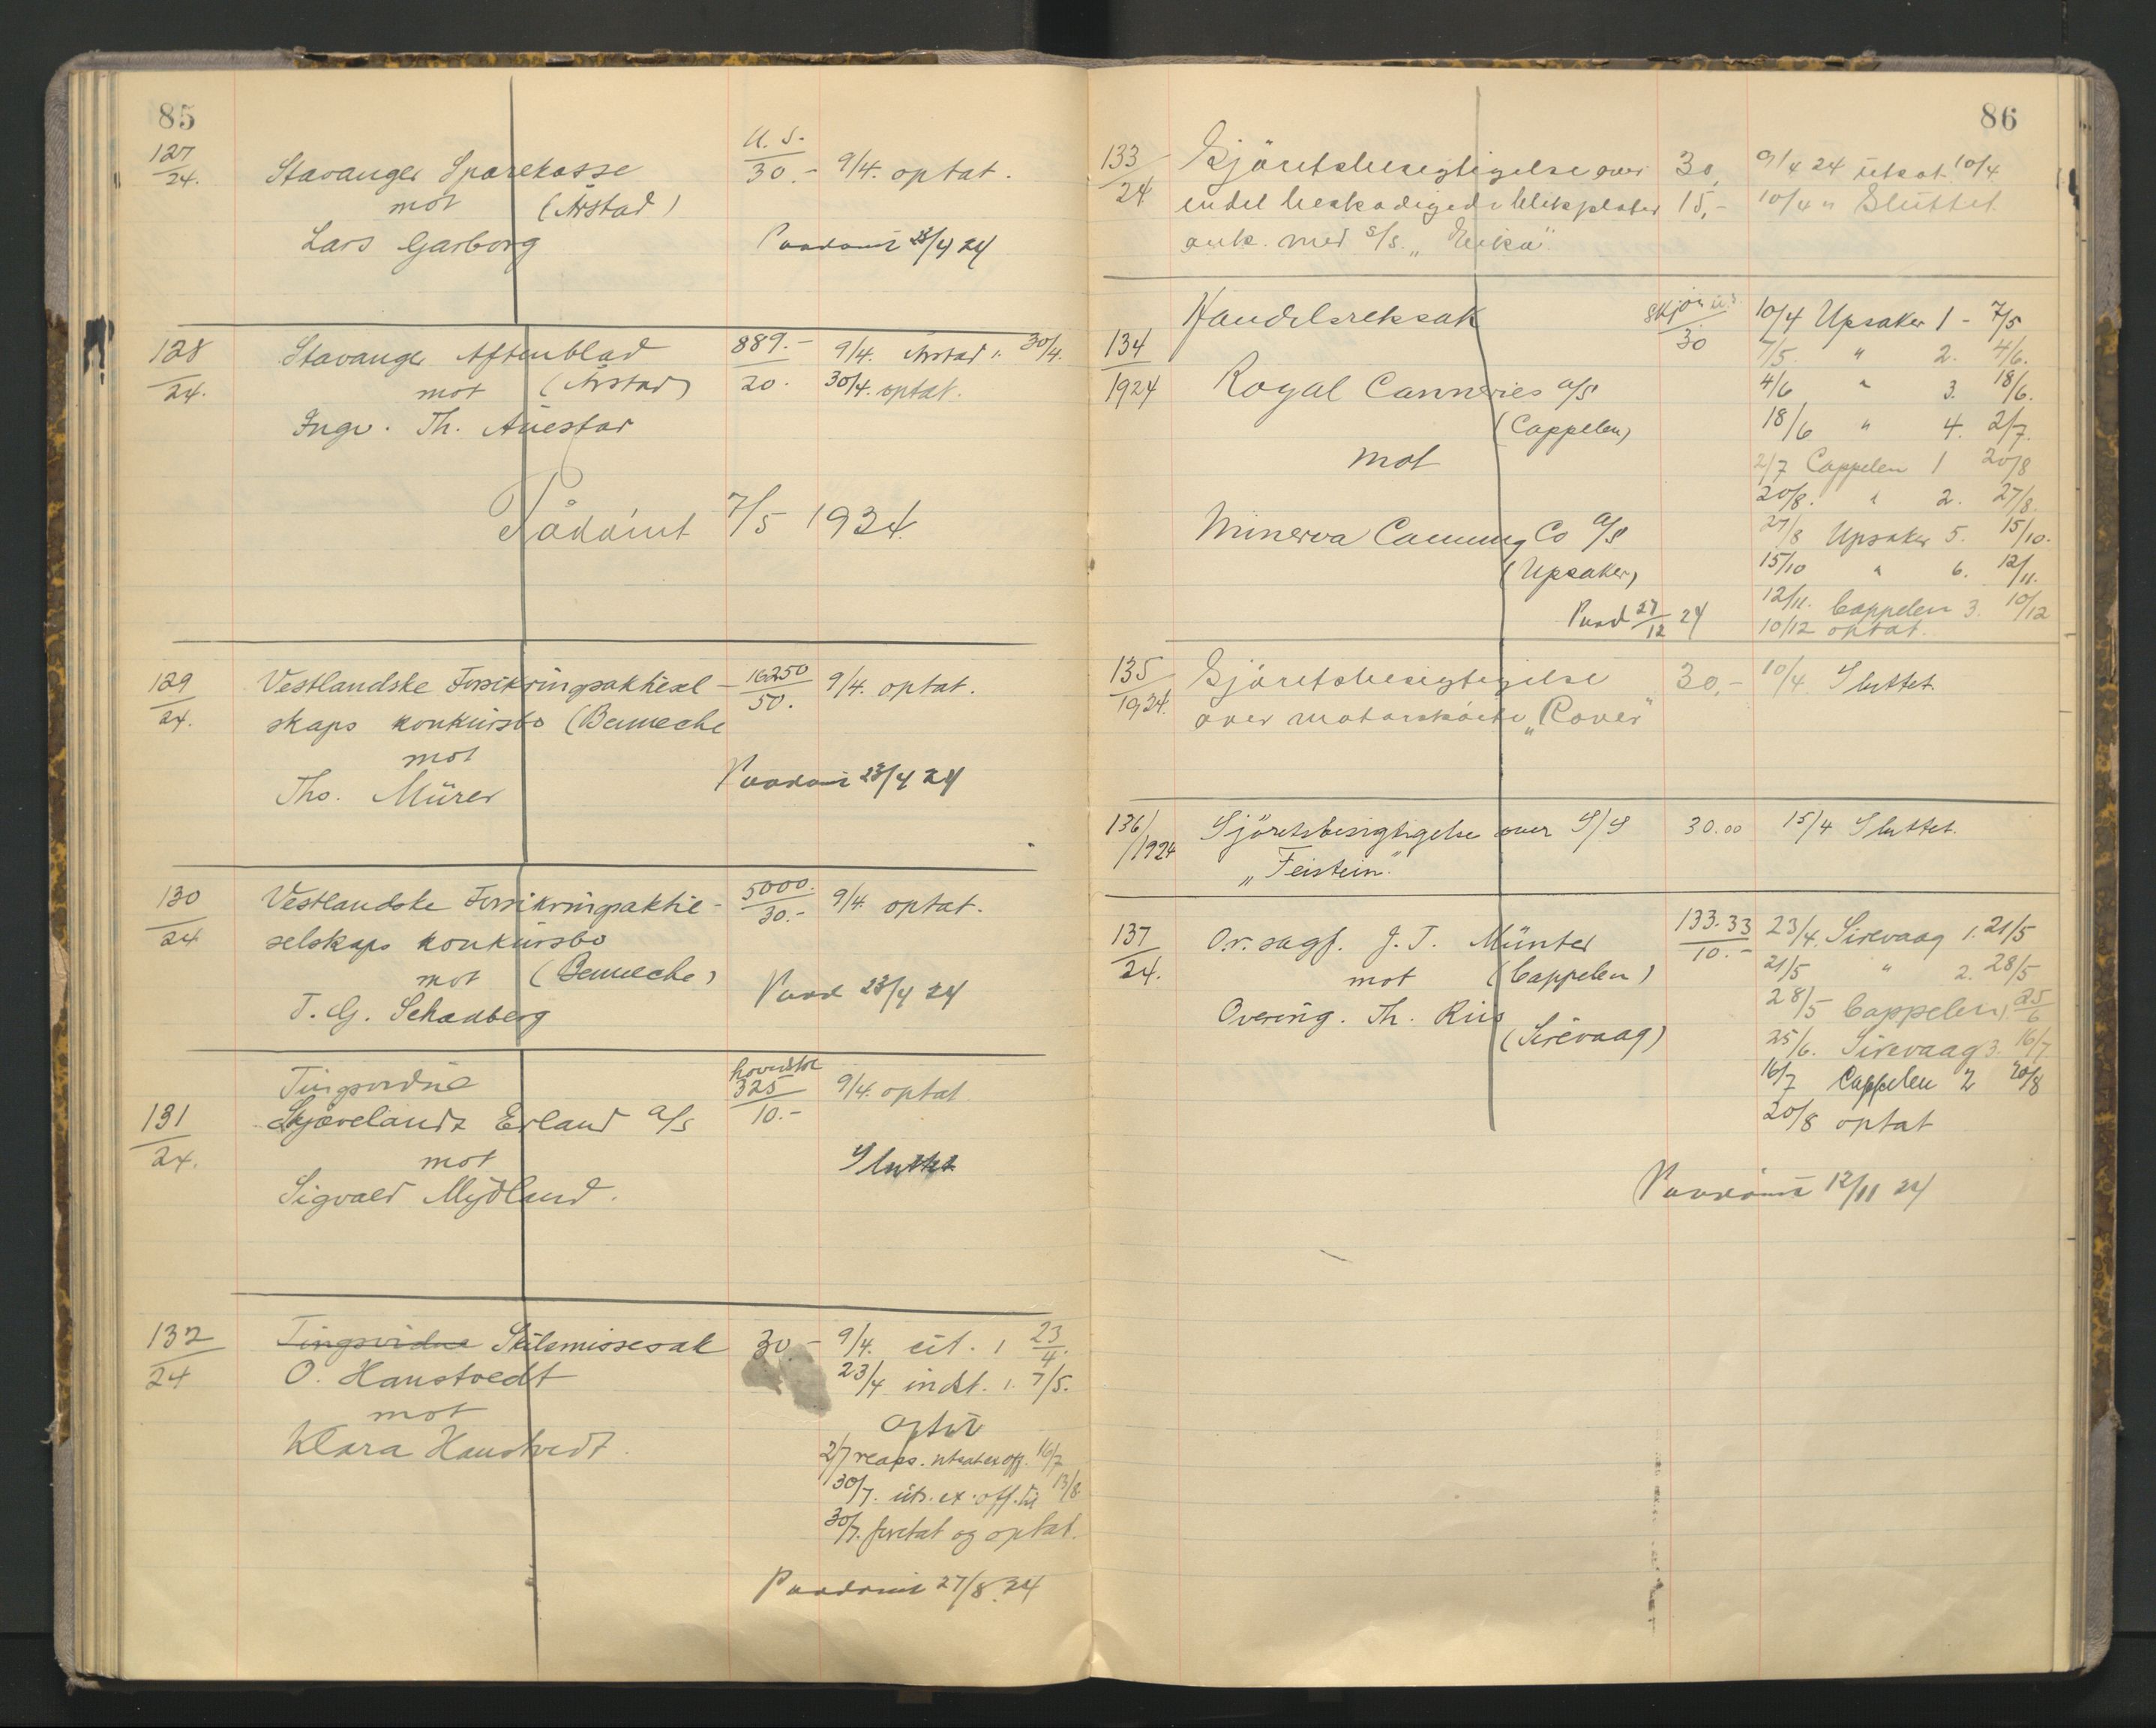 85
127/24.
Stavanger Sparekasse
mot (Årstad)
Lars Garborg
U. S.
30.- 9/4. optat.
Paadömt 23/4 24
128/24.
Stavanger Aftenblad
mot (Årstad)
Ingv. Th. Auestad
889.- 9/4. Årstad 1. 30/4.
20. 30/4. optat.
Pådömt 7/5 1924.
129/24.
Vestlandske Forsikringsaktiesel-
skaps konkursbo (Benneche
mot
Ths. Mürer
16250
50. 9/4. optat.
Paadömt 23/4 24
130/24
Vestlandske Forsikringsaktie-
selskaps konkursbo
mot (Benneche)
T. G. Schanberg
5000.
30.- 9/4. optat.
Paad 23/4 24
131/24.
Tingsvidne
Skjævelandz Erland a/s
mot
Sigvald Mydland.
325
10.- 9/4. optat.
Sluttet
132/24
Tingsvidne Skilsmissesak
O. Hanstvedt
mot
Klara Hanstvedt.
30.- 9/4. ut. 1 23/4.
23/4 indst. 1. 7/5.
optat
2/7 reass. utsat ex off. 16/7
30/7. uts. ex. off. til 13/8
30/7. foretat og optat.
Paadömt 27/8. 24
86
133/24
Sjöretsbesigtigelse over
endel beskadigede blikplater
ank. med s/s. „Erika"
30,
15,-
9/4 24 utsat 10/4
10/4 " Sluttet.
134/1924
Handelsretssak
Royal Canneries a/s
(Cappelen)
mot
Minerva Canning Co a/s
(Upsaker)
Paad 27/12 24
Skjön u.s.
30
10/4 Upsaker 1 - 7/5
7/5. " 2. 4/6.
4/6 " 3. 18/6.
18/6 " 4. 2/7.
2/7 Cappelen 1 20/8
20/8. " 2. 27/8.
27/8 Upsaker 5. 15/10.
15/10 " 6. 12/11.
12/11. Cappelen 3. 10/12
10/12 optat.
135/1924.
Sjöretsbesigtigelse
over motorsköite „Rover"
30,- 10/4. Sluttet.
136/1924
Sjöretsbesigtigelse over S/S
„Feistein."
30.00 15/4 Sluttet.
137/24.
Or. sagf. J. T. Münter
mot (Cappelen)
Overing. Th. Riis
(Sirevaag)
133.33
10.-
23/4. Sirevaag 1. 21/5
21/5 " 2. 28/5
28/5 Cappelen 1. 25/6
25/6. Sirevaag 3. 16/7.
16/7 Cappelen 2 20/8
20/8 optat
Paadömt 12/11 24